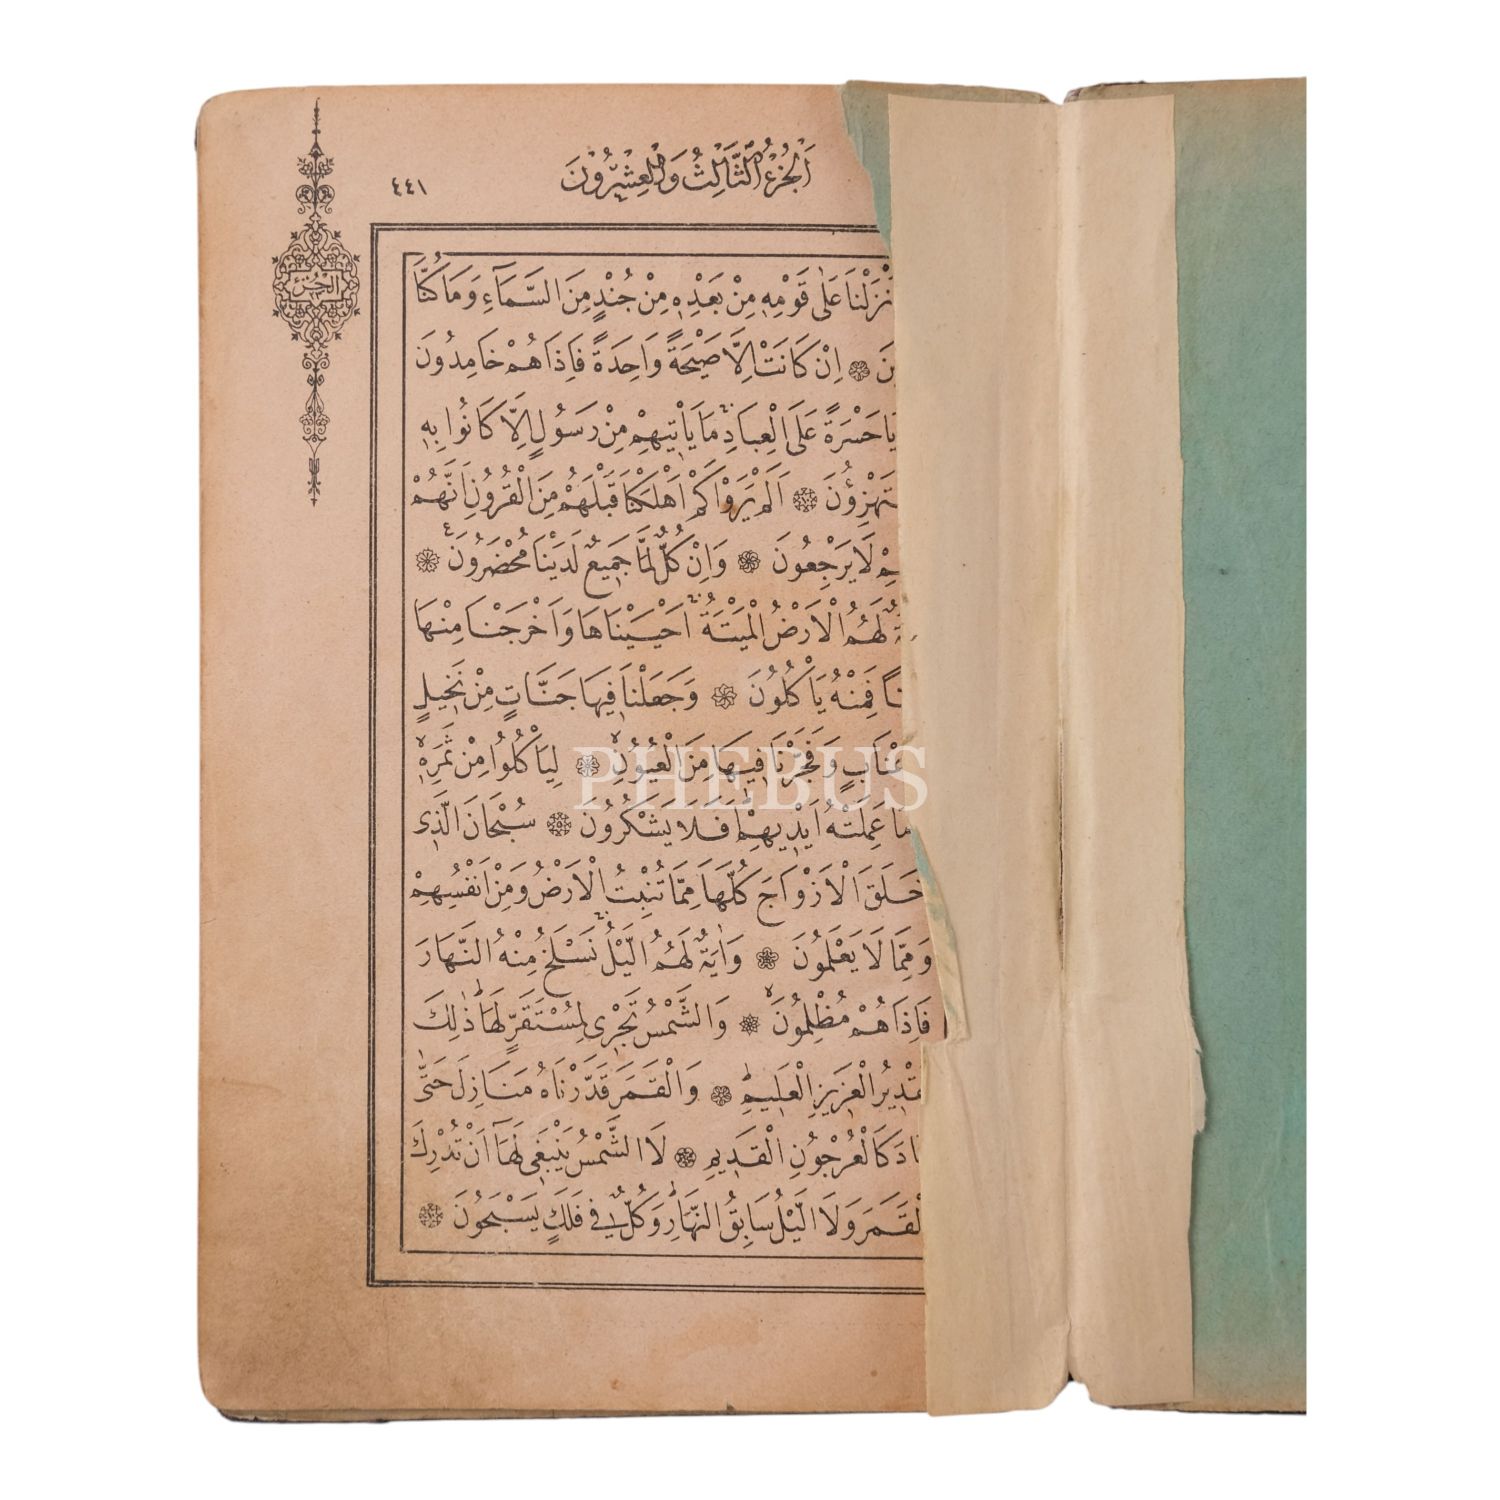 اَلْجُزْءُ الثَّالِثُ وَالْعِشْرُونَ
٤٤١
الجزء
نْزَلْنَا عَلٰى قَوْمِه۪ مِنْ بَعْدِه۪ مِنْ جُنْدٍ مِنَ السَّمَآءِ وَمَا كُنَّا
ينَ اِنْ كَانَتْ اِلَّا صَيْحَةً وَاحِدَةً فَاِذَا هُمْ خَامِدُونَ
يَا حَسْرَةً عَلَى الْعِبَادِ مَا يَأْت۪يهِمْ مِنْ رَسُولٍ اِلَّا كَانُوا بِه۪
تَهْزِؤُنَ اَلَمْ يَرَوْا كَمْ اَهْلَكْنَا قَبْلَهُمْ مِنَ الْقُرُونِ اَنَّهُمْ
هِمْ لَا يَرْجِعُونَ وَاِنْ كُلٌّ لَمَّا جَم۪يعٌ لَدَيْنَا مُحْضَرُونَ
ةٌ لَهُمُ الْاَرْضُ الْمَيْتَةُ اَحْيَيْنَاهَا وَاَخْرَجْنَا مِنْهَا
ا فَمِنْهُ يَأْكُلُونَ وَجَعَلْنَا ف۪يهَا جَنَّاتٍ مِنْ نَخ۪يلٍ
عْنَابٍ وَفَجَّرْنَا ف۪يهَا مِنَ الْعُيُونِ لِيَأْكُلُوا مِنْ ثَمَرِه۪
مَا عَمِلَتْهُ اَيْد۪يهِمْ اَفَلَا يَشْكُرُونَ سُبْحَانَ الَّذ۪ي
خَلَقَ الْاَزْوَاجَ كُلَّهَا مِمَّا تُنْبِتُ الْاَرْضُ وَمِنْ اَنْفُسِهِمْ
وَمِمَّا لَا يَعْلَمُونَ وَاٰيَةٌ لَهُمُ الَّيْلُ نَسْلَخُ مِنْهُ النَّهَارَ
فَاِذَا هُمْ مُظْلِمُونَ وَالشَّمْسُ تَجْر۪ي لِمُسْتَقَرٍّ لَهَا ذٰلِكَ
تَقْد۪يرُ الْعَز۪يزِ الْعَل۪يمِ وَالْقَمَرَ قَدَّرْنَاهُ مَنَازِلَ حَتّٰى
ادَ كَالْعُرْجُونِ الْقَد۪يمِ لَا الشَّمْسُ يَنْبَغ۪ي لَهَآ اَنْ تُدْرِكَ
الْقَمَرَ وَلَا الَّيْلُ سَابِقُ النَّهَارِ وَكُلٌّ ف۪ي فَلَكٍ يَسْبَحُونَ
PHEBUS